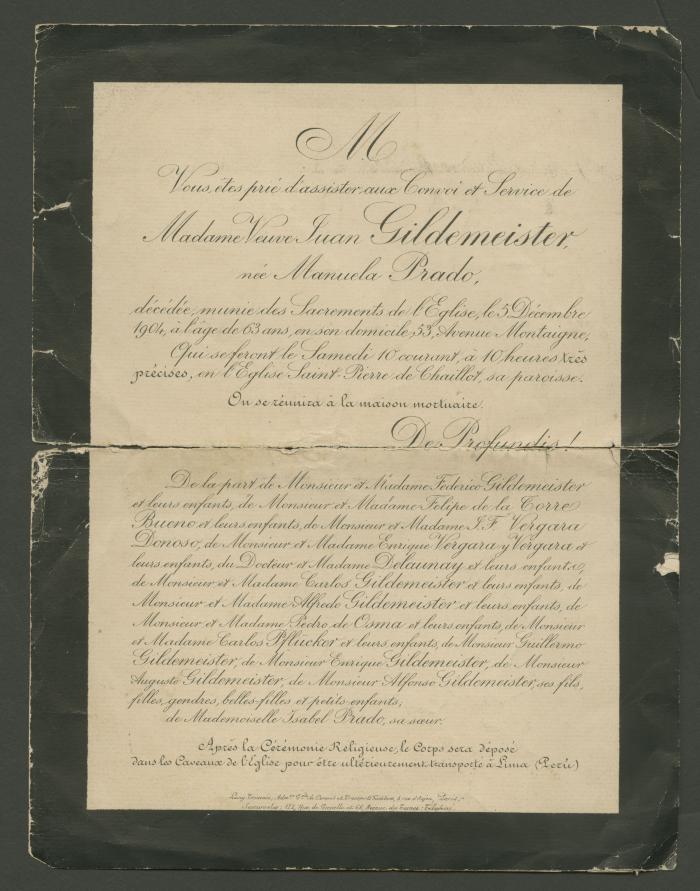 M.
Vous êtes prié d'assister aux Convoi et Service de
Madame Veuve Juan Gildemeister,
née Manuela Prado,
décédée, munie des Sacrements de l'Eglise, le 5 Décembre
1904, à l'âge de 63 ans, en son domicile, 53, Avenue Montaigne,
Qui se feront le Samedi 10 courant, à 10 heures très
précises, en l'Eglise Saint-Pierre de Chaillot, sa paroisse.
On se réunira à la maison mortuaire.
De Profundis!
De la part de Monsieur et Madame Federico Gildemeister
et leurs enfants, de Monsieur et Madame Felipe de la Torre
Bueno et leurs enfants, de Monsieur et Madame J. F. Vergara
Donoso, de Monsieur et Madame Enrique Vergara y Vergara et
leurs enfants, du Docteur et Madame Delaunay et leurs enfants,
de Monsieur et Madame Carlos Gildemeister et leurs enfants, de
Monsieur et Madame Alfredo Gildemeister et leurs enfants, de
Monsieur et Madame Pedro de Osma et leurs enfants, de Monsieur
et Madame Carlos Pflücker et leurs enfants, de Monsieur Guillermo
Gildemeister, de Monsieur Enrique Gildemeister, de Monsieur
Augusto Gildemeister, de Monsieur Alfonso Gildemeister, ses fils,
filles, gendres, belles-filles et petits enfants;
de Mademoiselle Isabel Prado, sa sœur.
Après la Cérémonie Religieuse, le Corps sera déposé
dans les Caveaux de l'Eglise pour être ultérieurement transporté à Lima (Perú)
de Convoi et Transports Funèbres, Paris,
Succursales: 122, Rue de et 68, Avenue des Ternes. Téléphone